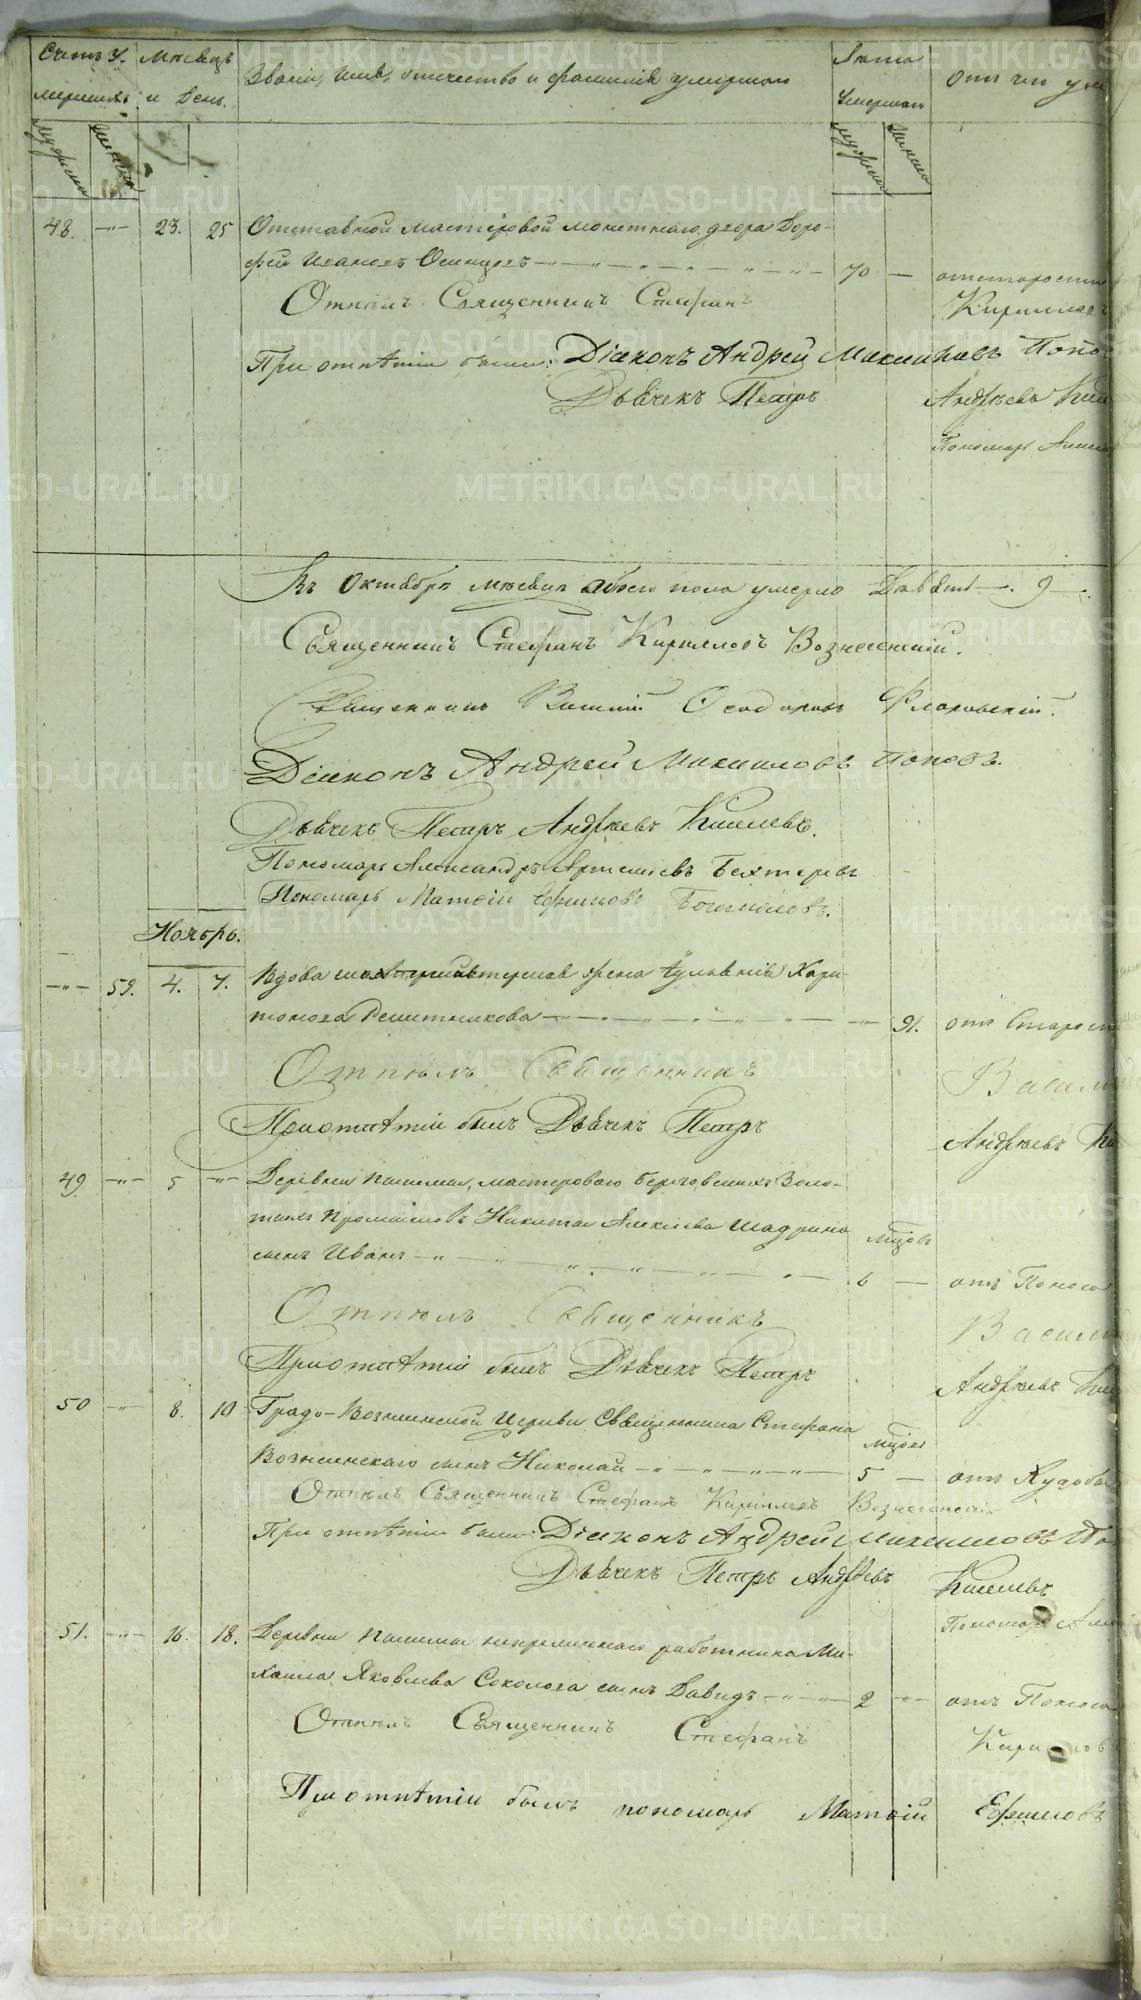 Счетъ у- Мѣсяцъ Званіе, имя, отчество и фамилія умершаго Лѣта Отъ чего
мершихъ и день. умершаго
Мужеска Женска Мужеска Женска
48. —"— 23. 25 Отставной мастеровой монетнаго двора Доро-
фей Ивановъ Осинцовъ 70 — отъ старости
Отпѣлъ Священникъ Стефанъ Кирилловъ
При отпѣтіи были: Діаконъ Андрей Михайловъ Попо
Дьячекъ Петръ Андреевъ
Пономарь
Въ Октябрѣ мѣсяцѣ обоего пола умерло Девять — 9 —.
Священникъ Стефанъ Кирилловъ Вознесенскій.
Священникъ Василій Феодоровъ Флоровскій.
Діаконъ Андрей Михайловъ Поповъ.
Дьячекъ Петръ Андреевъ Киселевъ.
Пономарь Александръ Артемьевъ Бехтеревъ
Пономарь Матѳій Ефимовъ Богомоловъ.
Ноябрь.
—"— 59. 4. 7. Вдова жена Хари-
тонова Решетникова 91. отъ Старости
Отпѣлъ Священникъ Васил
При отпѣтіи былъ Дьячекъ Петръ Андреевъ Ки
49. —"— 5 —"— Деревни мастероваго Березовскихъ Золо-
тыхъ промысловъ Никиты Алексѣева Шадрина мѣсяцовъ
сынъ Иванъ 6 — отъ Поноса
Отпѣлъ Священникъ Васил
При отпѣтіи былъ Дьячекъ Петръ Андреевъ Ки
50 —"— 8. 10 Градо-Вознесенской Церкви Священника Стефана мѣсяцовъ
Вознесенскаго сынъ Николай 5 — отъ
Отпѣлъ Священникъ Стефанъ Кирилловъ Вознесенскій
При отпѣтіи были: Діаконъ Андрей Михайловъ По
Дьячекъ Петръ Андреевъ Киселевъ
Пономарь Але
51. —"— 16. 18. Деревни непременнаго работника Ми-
хаила Яковлева Соколова сынъ Давидъ 2 —"— отъ Поноса
Отпѣлъ Священникъ Стефанъ Кирилловъ
При отпѣтіи былъ пономарь Матѳій Ефимовъ
METRIKI.GASO-URAL.RU